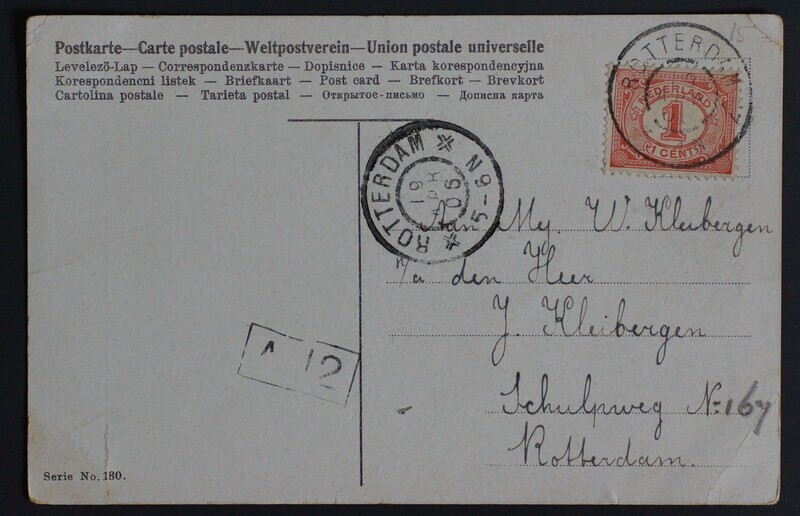 Postkarte—Carte postale—Weltpostverein—Union postale universelle
Levelezö-Lap — Correspondenzkarte — Dopisnice — Karta korespondencyjna
Korespondencni listek — Briefkaart — Post card — Brefkort — Brevkort
Cartolina postale — Tarieta postal — Открытое-письмо — Дописна карта
ROTTERDAM
NEDERLAND
1
1 CENT
ROTTERDAM
N9
5-9
06
Aan Mej. W. Kleibergen
p/a den Heer
J. Kleibergen
Schulpweg No 167
Rotterdam.
A 12
Serie No. 180.